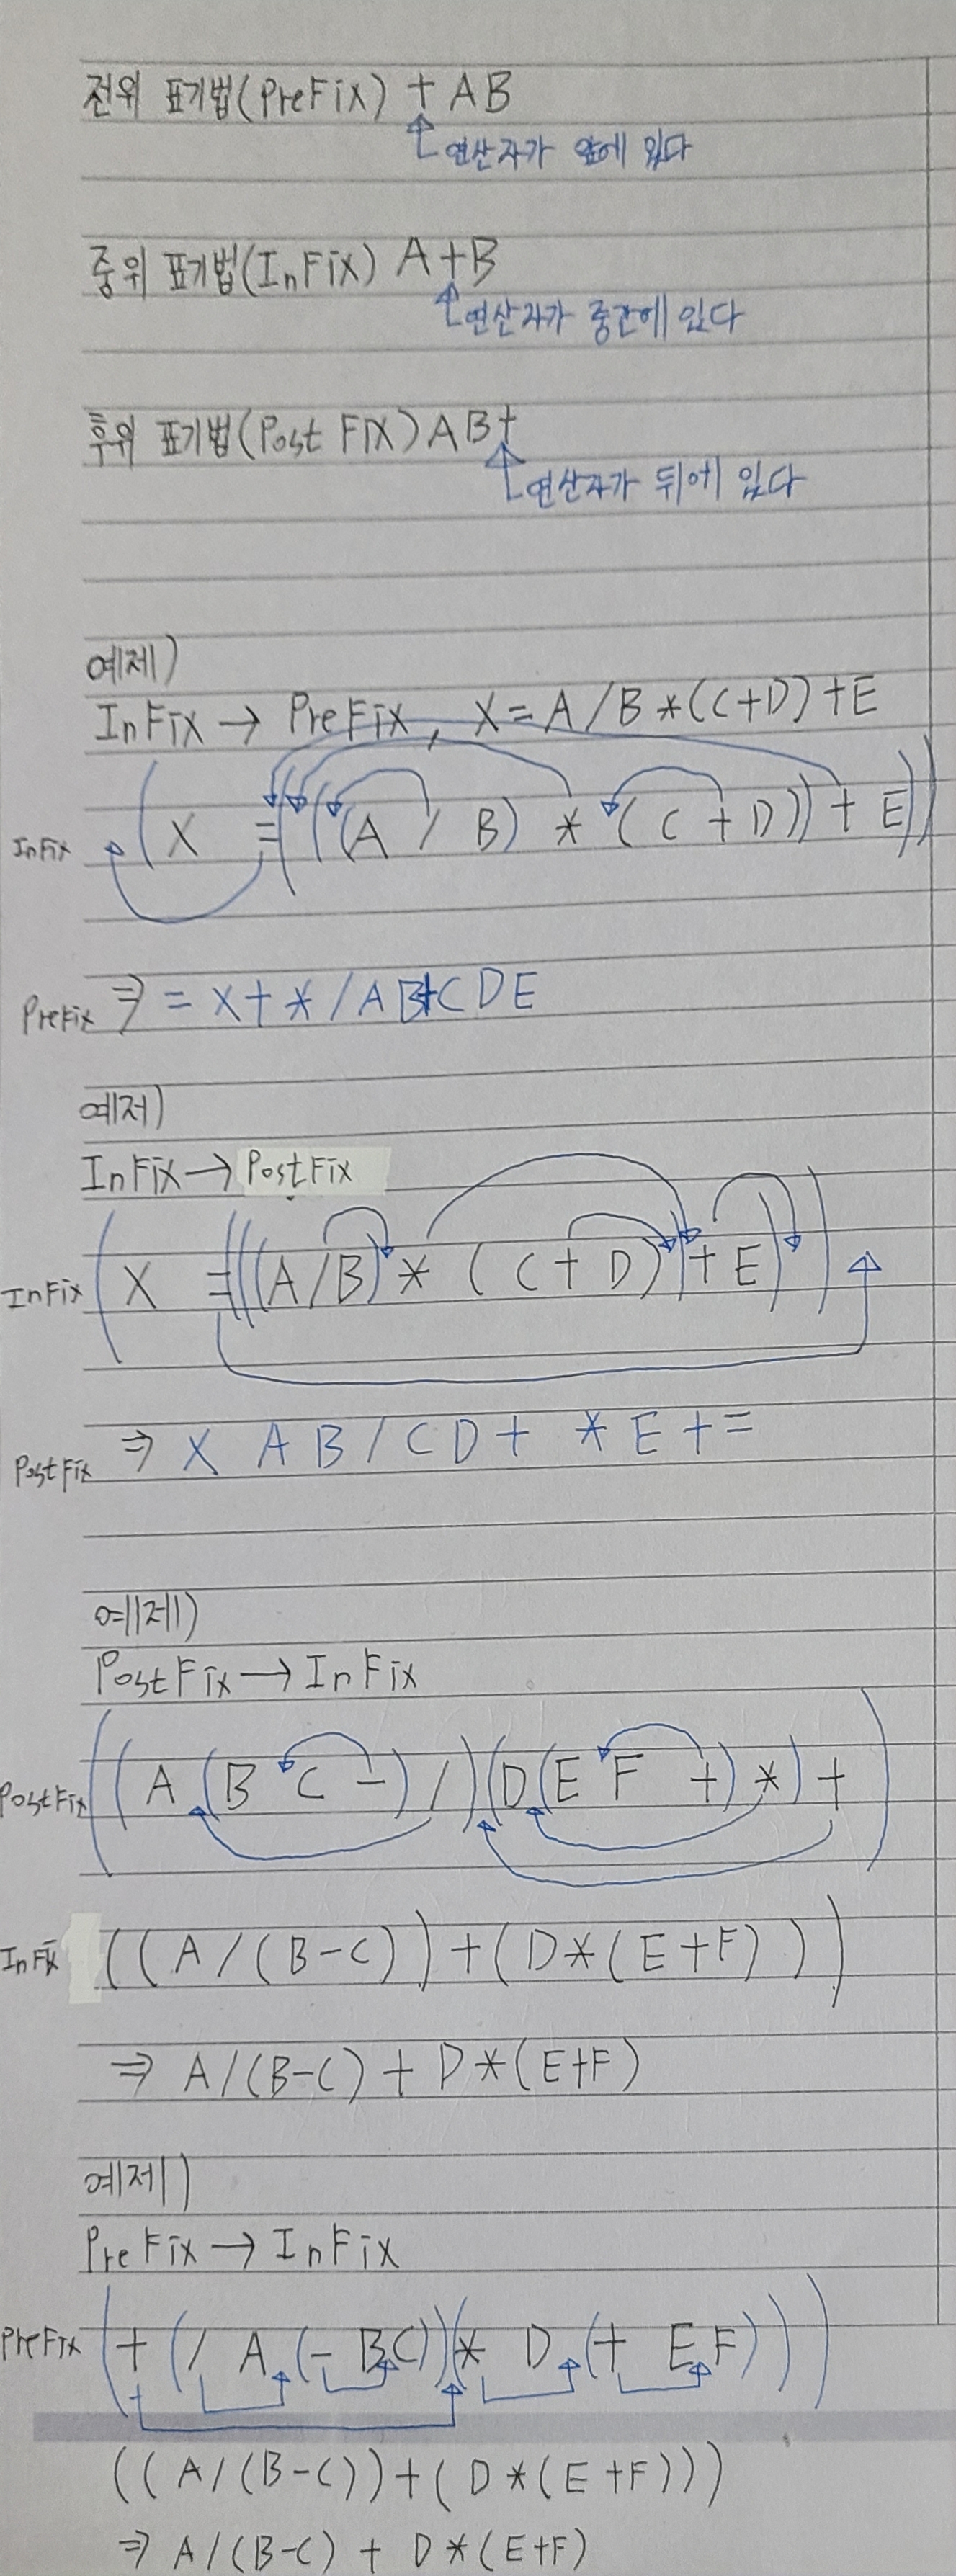 전위 표기법(PreFix) + AB
연산자가 앞에 있다
중위 표기법(InFix) A+B
연산자가 중간에 있다
후위 표기법(Post Fix) AB+
연산자가 뒤에 있다
예제)
InFix → PreFix, X=A/B*(C+D)+E
InFix (X =(((A / B) * (C + D)) + E))
PreFix ⇒ = X + * / A B + C D E
예제)
InFix → PostFix
InFix (X =(((A/B) * (C+D))+E))
PostFix ⇒ X A B / C D + * E + =
예제)
PostFix → InFix
PostFix ((A (B C -) /)(D(E F +) *) +)
InFix ((A/(B-C))+(D*(E+F)))
⇒ A/(B-C) + D*(E+F)
예제)
PreFix → InFix
PreFix (+ (/ A (- BC))(* D (+ EF)))
((A/(B-C))+(D*(E+F)))
⇒ A/(B-C) + D*(E+F)